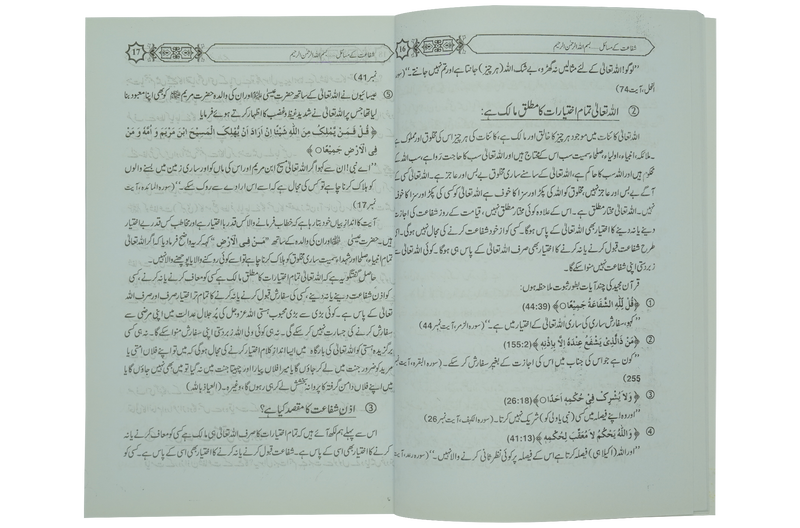 شفاعت کے مسائل ..... بسم اللہ الرحمن الرحیم
16
"لوگو! اللہ تعالیٰ کے لئے مثالیں نہ گھڑو، بے شک اللہ (ہر چیز) جانتا ہے اور تم نہیں جانتے۔"
النحل، آیت 74)
② اللہ تعالیٰ تمام اختیارات کا مطلق مالک ہے:
اللہ تعالیٰ کائنات میں موجود ہر چیز کا خالق اور مالک ہے، کائنات کی ہر چیز اس کی مخلوق اور مملوک ہے
ملائکہ، انبیاء، اولیاء، صلحاء سمیت سب اس کے محتاج ہیں اور اللہ تعالیٰ سب کا حاجت روا ہے، سب اللہ کے
محکوم ہیں اور اللہ سب کا حاکم ہے، اللہ تعالیٰ کے سامنے ساری مخلوق بے بس اور عاجز ہے۔ اللہ تعالیٰ کسی کے
آگے بے بس اور عاجز نہیں، مخلوق کو اللہ کی پکڑ اور سزا کا خوف ہے اللہ تعالیٰ کو کسی کی پکڑ اور سزا کا خوف
نہیں۔ اللہ تعالیٰ مختار مطلق ہے۔ اس کے علاوہ کوئی مختار مطلق نہیں، قیامت کے روز شفاعت کی اجازت
دینے یا نہ دینے کا اختیار بھی اللہ تعالیٰ کے پاس ہی ہوگا۔ کسی کو از خود شفاعت کرنے کی مجال نہیں ہوگی۔
طرح شفاعت قبول کرنے یا نہ کرنے کا اختیار بھی صرف اللہ تعالیٰ کے پاس ہی ہوگا۔ کوئی اللہ تعالیٰ سے
زبردستی اپنی شفاعت نہیں منوا سکے گا۔
قرآن مجید کی چند آیات بطور ثبوت ملاحظہ ہوں:
① ﴿قُلْ لِلّٰهِ الشَّفَاعَةُ جَمِيْعًا﴾ (44:39)
"کہو، سفارش ساری کی ساری اللہ تعالیٰ کے اختیار میں ہے۔" (سورہ الزمر، آیت نمبر 44)
② ﴿مَنْ ذَا الَّذِىْ يَشْفَعُ عِنْدَهٗ اِلَّا بِاِذْنِهٖ﴾ (155:2)
"کون ہے جو اس کی جناب میں اس کی اجازت کے بغیر سفارش کر سکے۔" (سورہ البقرہ، آیت نمبر
255
③ ﴿وَلَا يُشْرِكُ فِىْ حُكْمِهٖ اَحَدًا﴾ (26:18)
"اور وہ اپنے فیصلہ میں کسی (نبی یا ولی کو) شریک نہیں کرتا۔" (سورہ الکہف، آیت نمبر 26
④ ﴿وَاللّٰهُ يَحْكُمُ لَا مُعَقِّبَ لِحُكْمِهٖ﴾ (41:13)
"اور اللہ (اکیلا ہی) فیصلہ کرتا ہے اس کے فیصلہ پر کوئی نظر ثانی کرنے والا نہیں۔" (سورہ رعد، آیت
17
شفاعت کے مسائل ..... بسم اللہ الرحمن الرحیم
نمبر 41)
⑤ عیسائیوں نے اللہ تعالیٰ کے ساتھ حضرت عیسیٰ اور ان کی والدہ حضرت مریم کو بھی اپنا معبود بنا
لیا تھا جس پر اللہ تعالیٰ نے شدید غیظ و غضب کا اظہار کرتے ہوئے فرمایا
﴿قُلْ فَمَنْ يَّمْلِكُ مِنَ اللّٰهِ شَيْئًا اِنْ اَرَادَ اَنْ يُّهْلِكَ الْمَسِيْحَ ابْنَ مَرْيَمَ وَ اُمَّهٗ وَ مَنْ
فِى الْاَرْضِ جَمِيْعًا﴾
"اے نبی! ان سے کہو اگر اللہ تعالیٰ مسیح ابن مریم اور اس کی ماں کو اور ساری زمین میں بسنے والوں
کو ہلاک کرنا چاہے تو کس کی مجال ہے کہ اسے اس ارادے سے روک سکے۔" (سورہ المائدہ، آیت
نمبر 17)
آیت کا انداز بیاں خود بتا رہا ہے کہ خطاب فرمانے والا کس قدر با اختیار ہے اور مخاطب کس قدر بے اختیار
ہیں۔ حضرت عیسیٰ اور ان کی والدہ کے ساتھ "مَنْ فِى الْاَرْضِ" کہہ کر یہ واضح فرما دیا کہ اگر اللہ تعالیٰ
تمام انبیاء، صلحاء اور شہداء سمیت ساری مخلوق کو ہلاک کرنا چاہے تو اسے کوئی روکنے والا یا پوچھنے والا نہیں۔
حاصل گفتگو یہ ہے کہ اللہ تعالیٰ تمام اختیارات کا مطلق مالک ہے کسی کو معاف کرنے یا نہ کرنے،
کو اذن شفاعت دینے یا نہ دینے، کسی کی سفارش قبول کرنے یا نہ کرنے کا تمام تر اختیار صرف اور صرف اللہ
تعالیٰ کے پاس ہے۔ کوئی بڑی سے بڑی محبوب ہستی اللہ عزوجل کی پر جلال عدالت میں اپنی مرضی سے
سفارش کرنے کی جسارت نہیں کر سکے گی۔ نہ ہی کوئی ولی اللہ زبردستی اپنی سفارش منوا سکے گا۔ نہ ہی کسی
برگزیدہ ہستی کو اللہ تعالیٰ کی بارگاہ میں ایسا انداز کلام اختیار کرنے کی مجال ہوگی کہ میں تو اپنے فلاں امتی یا
مرید کو ضرور جنت میں لے کر جاؤں گا یا میرا فلاں پیارا اور چہیتا جنت میں نہ گیا تو میں بھی نہیں جاؤں گا یا
میں اپنے فلاں دامن گرفتہ کا پروانہ بخشش لے کر ہی رہوں گا، وغیرہ۔ (العیاذ باللہ)
③ اذن شفاعت کا مقصد کیا ہے؟
اس سے پہلے ہم لکھ آئے ہیں کہ تمام اختیارات کا صرف اللہ تعالیٰ ہی مالک ہے کسی کو معاف کرنے یا نہ
کرنے کا اختیار بھی اسی کے پاس ہے۔ شفاعت قبول کرنے یا نہ کرنے کا اختیار بھی اسی کے پاس ہے۔ کسی کو